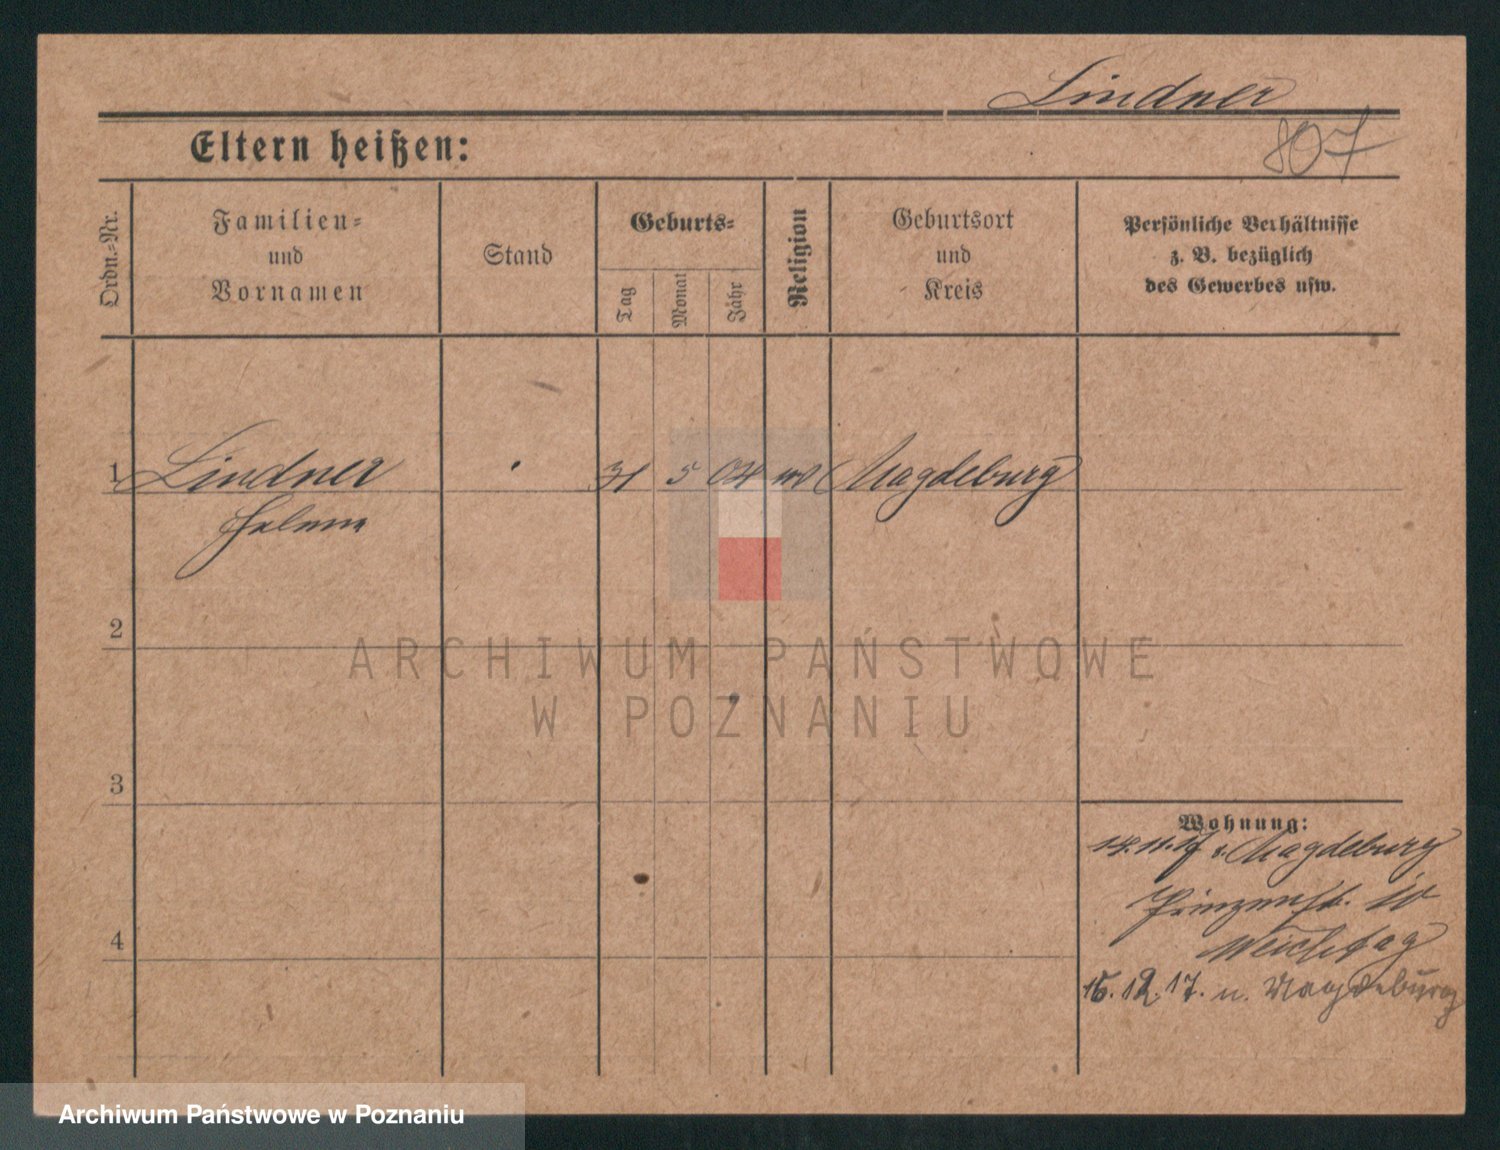 Lindner
807
Eltern heißen:
Ordn.-Nr.
Familien-
und
Vornamen
Stand
Geburts-
Tag
Monat
Jahr
Religion
Geburtsort
und
Kreis
Persönliche Verhältnisse
z. B. bezüglich
des Gewerbes usw.
1 Lindner 31 5 04 Magdeburg
Helene
2
3
4
Wohnung:
14.11.17 v. Magdeburg
Prinzenst. 10
Weichtag
15.12.17. n. Magdeburg
ARCHIWUM PAŃSTWOWE
W POZNANIU
Archiwum Państwowe w Poznaniu